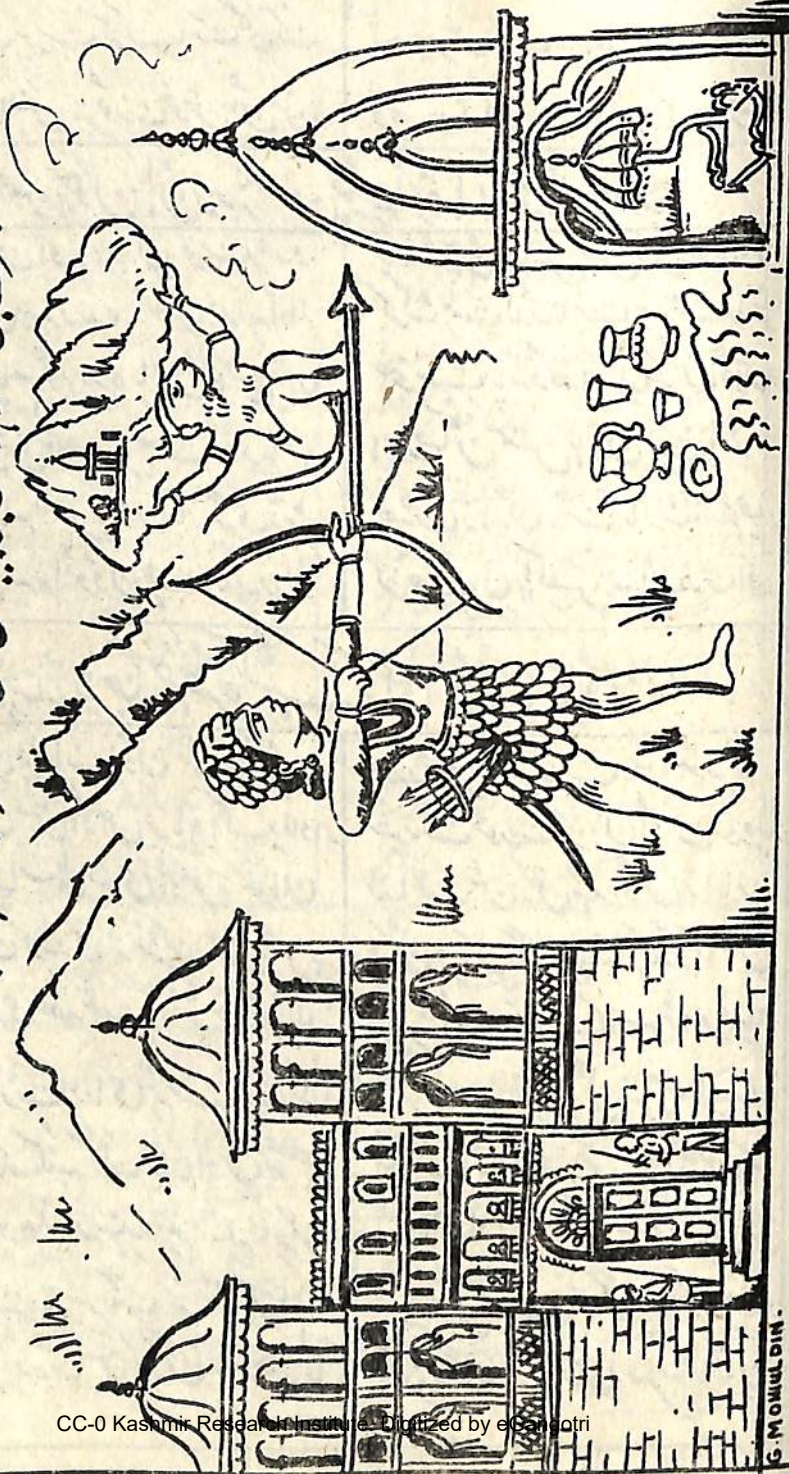 G. MOHIULDIN.
CC-0 Kashmir Research Institute. Digitized by eGangotri